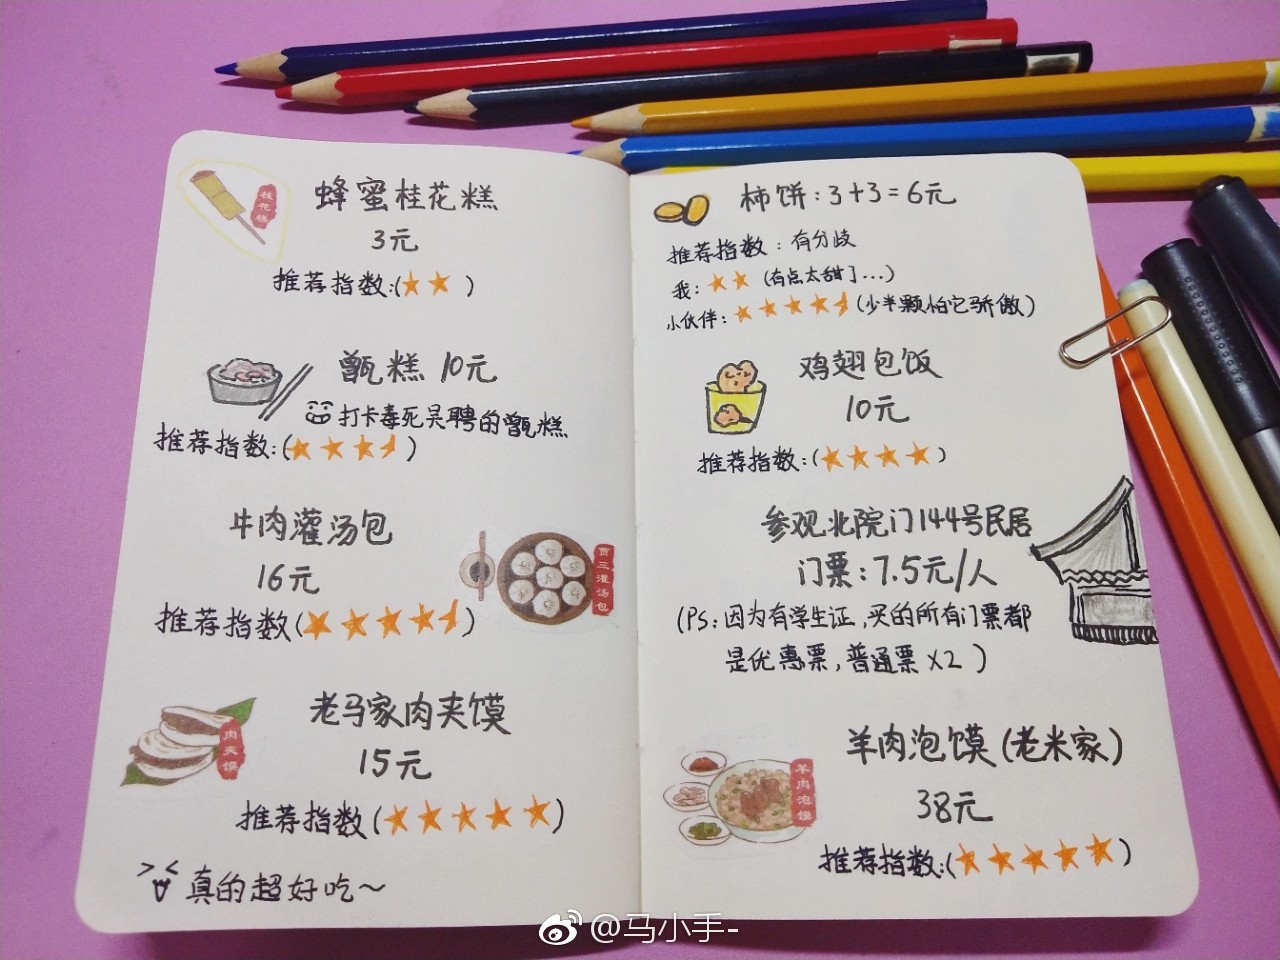 桂花糕
蜂蜜桂花糕
3元
推荐指数:(★★ )
甑糕 10元
打卡毒死吴聘的甑糕
推荐指数:(★★★⯨)
牛肉灌汤包
16元
推荐指数(★★★★⯨)
贾三灌汤包
老马家肉夹馍
15元
肉夹馍
推荐指数(★★★★★)
真的超好吃~
柿饼:3+3=6元
推荐指数:有分歧
我:★★(有点太甜了...)
小伙伴:★★★★⯨(少半颗怕它骄傲)
鸡翅包饭
10元
推荐指数:(★★★★)
参观北院门144号民居
门票:7.5元/人
(PS:因为有学生证,买的所有门票都
是优惠票,普通票×2)
羊肉泡馍(老米家)
38元
羊肉泡馍
推荐指数:(★★★★★)
@马小手-